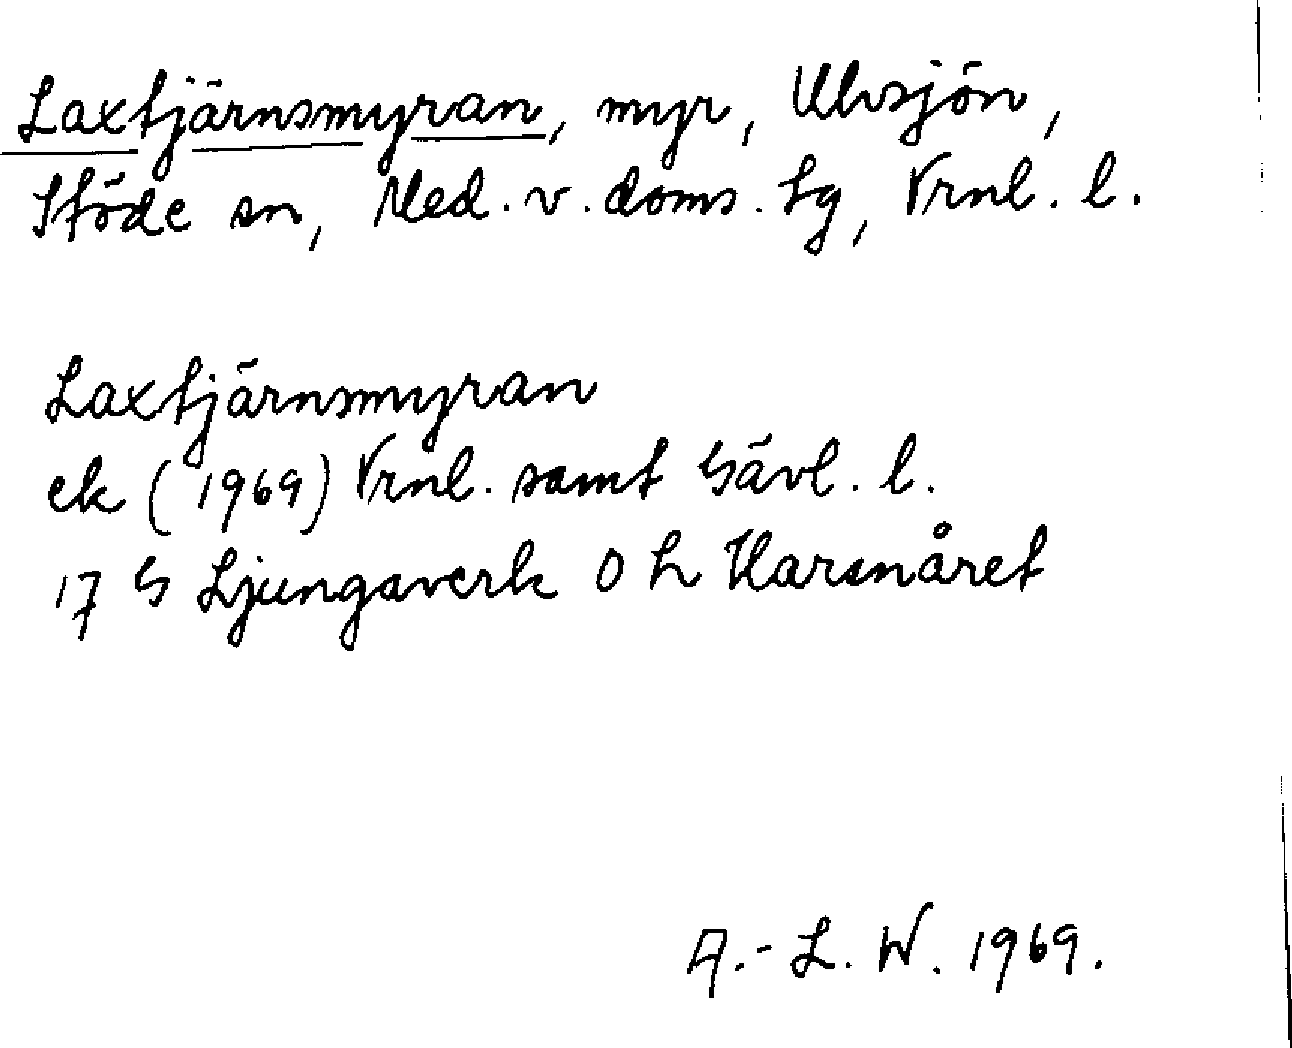 Laxtjärnsmyran, myr, Ulvsjön,
Stöde sn, Med. v. doms. tg, Vrnl. l.
Laxtjärnsmyran
ek (1969) Vrnl. samt Gävl. l.
17 G Ljungaverk O h Harsnåret
A.-L. W. 1969.